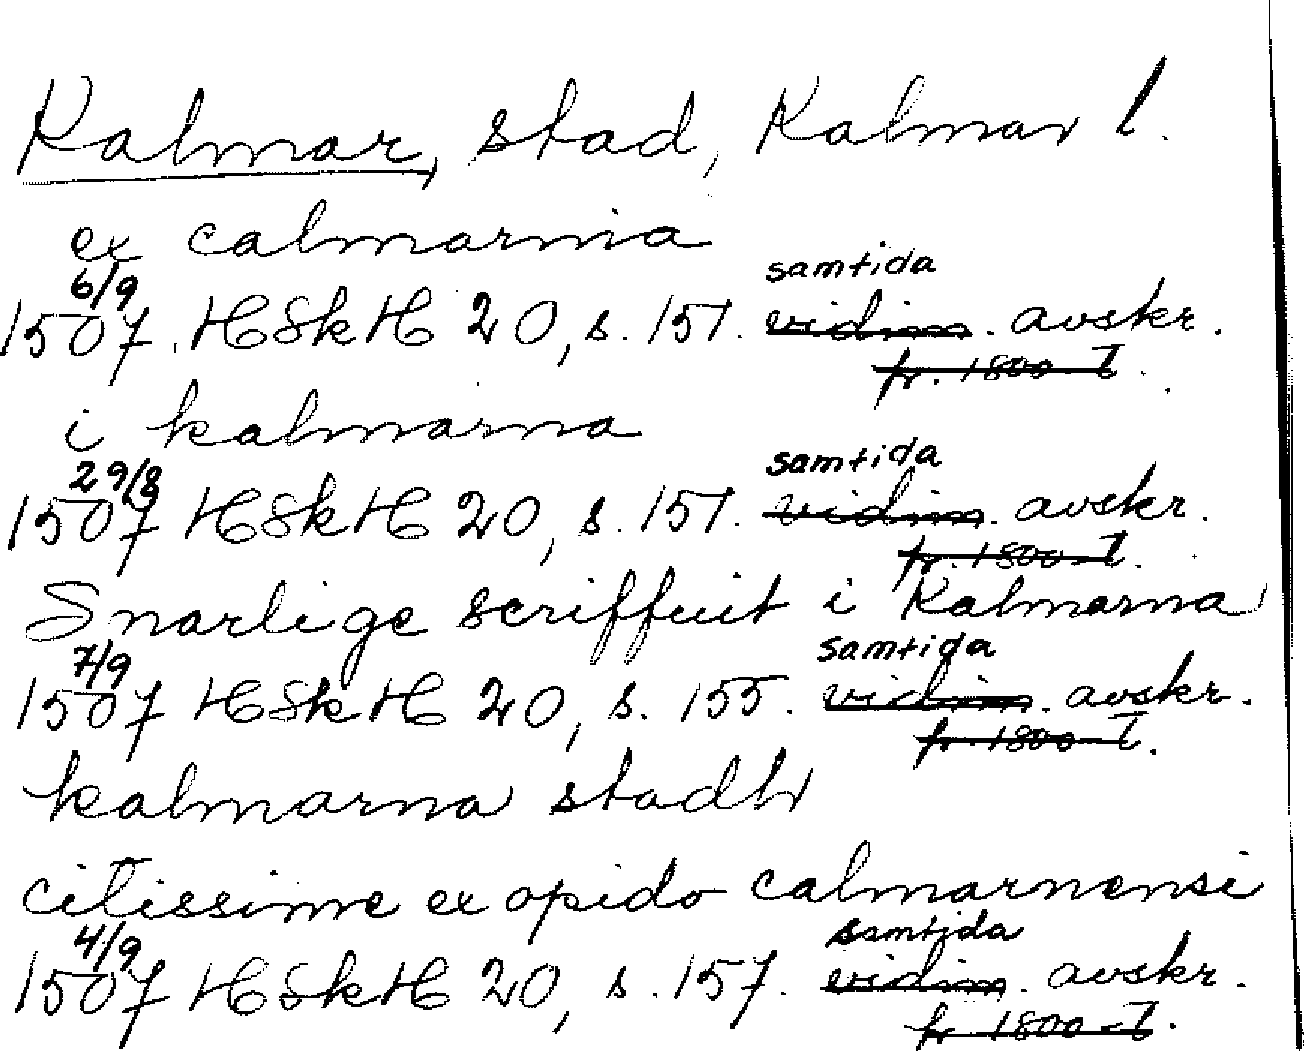 Kalmar, stad, Kalmar l.
ex calmarnia
6/9
samtida
1507. HSkH 20, s. 151. vidim. avskr.
fr. 1800-t.
i kalmarna
29/8
samtida
1507 HSkH 20, s. 151. vidim. avskr.
fr. 1800-t.
Snarlige scriffuit i Kalmarna
7/9
samtida
1507 HSkH 20, s. 155. vidim. avskr.
fr. 1800-t.
kalmarna stadh
citissime ex opido calmarnensi
4/9
samtida
1507 HSkH 20, s. 157. vidim. avskr.
fr. 1800-t.